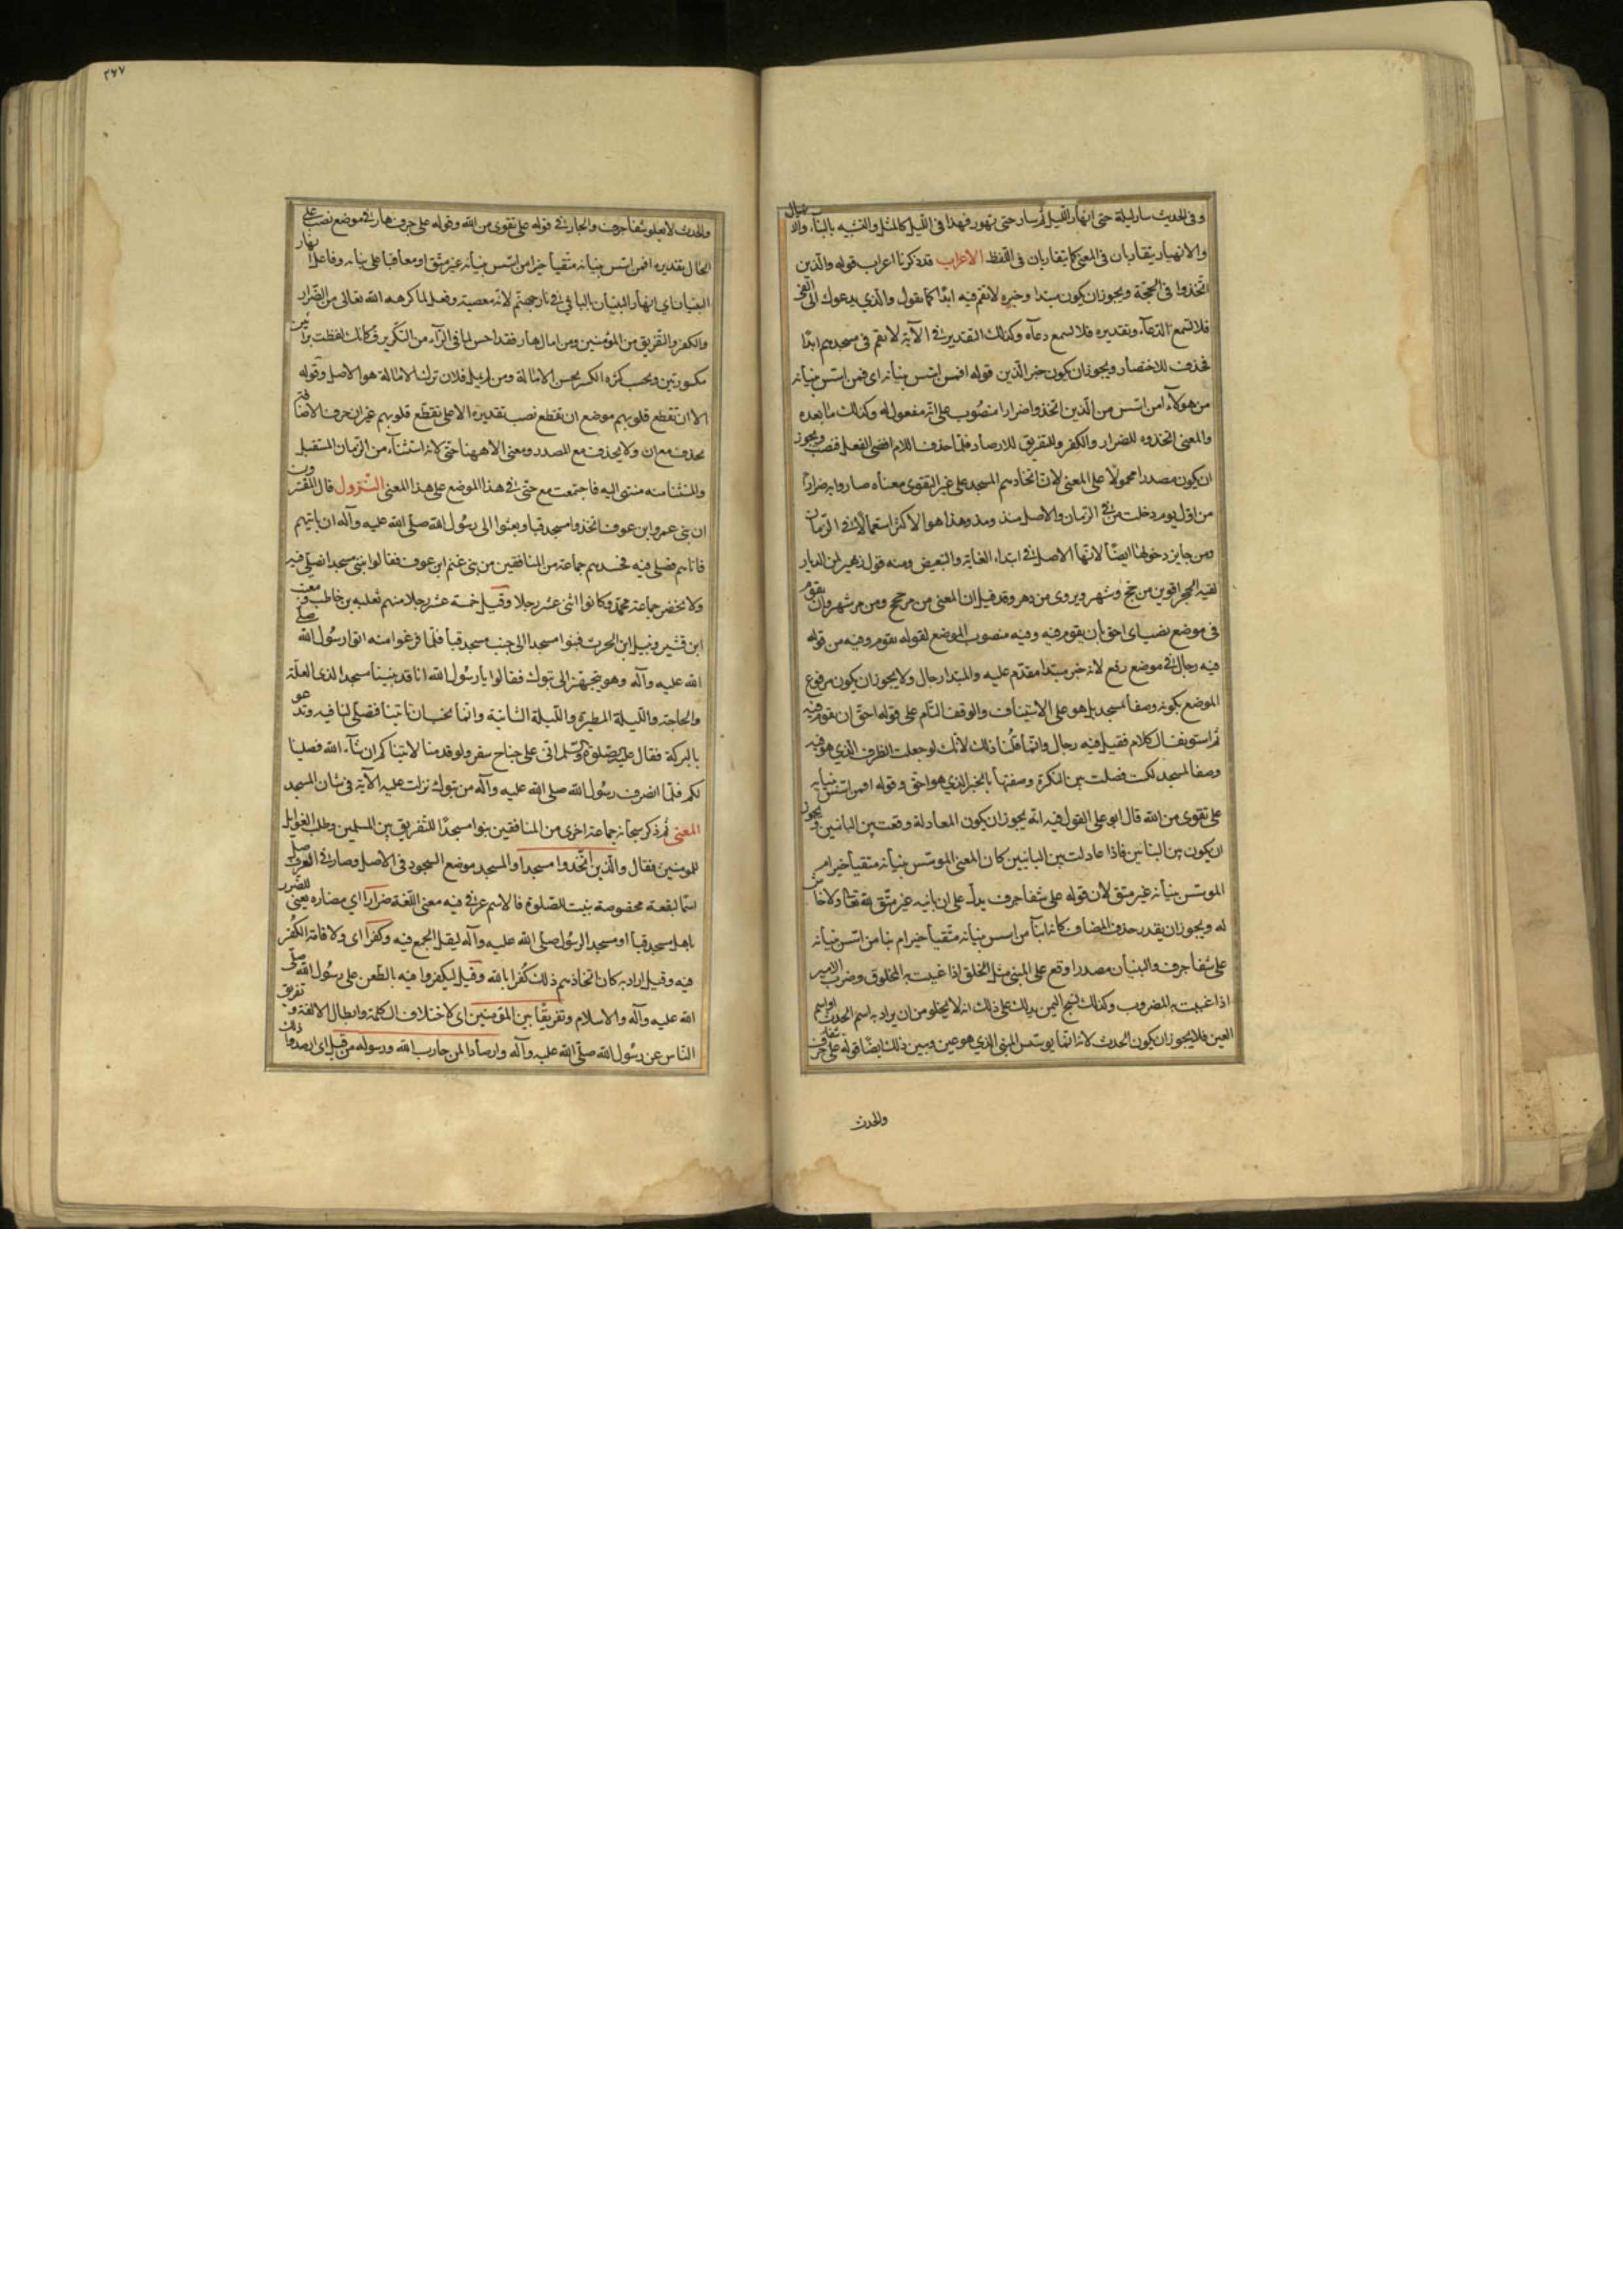 وفى الحديث سار ليلة حتى انهار الليل ثم سار حتى تهور فهذا فى الليل كالمثل والتشبيه بالبناء والا نهيال
والانهيار يتقاربان فى المعنى كما يتقاربان فى اللفظ الاعراب قد ذكرنا اعراب قوله والذين
اتخذوا فى الحجة ويجوز ان يكون مبتدا وخبره لا تقم فيه ابدًا كما تقول والذي يدعوك الى الغى
فلا تسمع الدعاء وتقديره فلا تسمع دعاه وكذلك التقدير في الآية لا تقم فى مسجدهم ابدًا
فحذف للاختصار ويجوز ان يكون خبر الذين قوله افمن اسس بنيانه اى فمن اسس بنيانه
من هولاء امن اسس من الذين اتخذوا ضرارا منصوب على انه مفعول له وكذلك ما بعده
والمعنى اتخذوه للضرار والكفر والتفريق للارصاد فلما حذف اللام افضى الفعل فنصب ويجوز
ان يكون مصدرا محمولا على المعنى لان اتخاذهم المسجد على غير التقوى معناه ضاروا به ضرارًا
من اول يوم دخلت من في الزمان والاصل منذ ومذ وهذا هو الاكثر استعمالا في الزمان
ومن جايز دخولها ايضًا لانها الاصل في ابتداء الغاية والتبعيض ومنه قول زهير لمن الديار
لقنة الحجر اقوين من حجج وشهر ويروى من دهر وقد قيل ان المعنى من مر حجج ومن مر شهر وان تقوم
فى موضع نصب اى احق بان تقوم فيه وفيه منصوب الموضع لقوله تقوم وفيه من قوله
فيه رجال في موضع رفع لانه خبر مبتدا مقدم عليه والمبتدا رجال ولا يجوز ان يكون مرفوع
الموضع بكونه وصفا لمسجد بل هو على الاستيناف والوقف التام على قوله احق ان تقوم فيه
ثم استونف الكلام فقيل فيه رجال وانما قلنا ذلك لانك لو جعلت الظرف الذي هو فيه
وصفا لمسجد لكنت فصلت بين النكرة وصفتها بالخبر الذي هو احق وقوله افمن اسس بنيانه
على تقوى من الله قال ابو على القول فيه انه يجوز ان يكون المعادلة وقعت بين البانيين ويجوز
ان يكون بين البنائين فاذا عادلت بين البانيين كان المعنى الموسس بنيانه متقيا خير ام
الموسس بنيانه غير متق لان قوله على شفا جرف يدل على ان بانيه غير متق لله تعالى ولا خاش
له ويجوز ان يقدر حذف المضاف كانه ابنا من اسس بنيانه متقيا خير ام بنا من اسس بنيانه
على شفا جرف والبنيان مصدر اوقع على المبنى مثل الخلق اذا عنيت به المخلوق وضرب الامير
اذا عنيت به المضروب وكذلك نسج اليمن يدلك على ذلك انه لا يخلو من ان يراد به اسم الحدث او اسم
العين فلا يجوز ان يكون الحدث لانه انما يوسس المبنى الذي هو عين ويبين ذلك ايضا قوله على شفا جرف
والحدث
٢٦٧
والحدث لا يعلو شفا جرف والجار في قوله على تقوى من الله وقوله على جرف هار في موضع نصب على
الحال تقديره افمن اسس بنيانه متقيا خير امن اسس بنيانه غير متق او معاقبا على بنيانه وفاعل انهار
البنيان اي انهار البنيان بالباني في نار جهنم لانه معصية وفعل لما كرهه الله تعالى من الضرار
والكفر والتفريق بين المؤمنين ومن امال هار فقد احسن لما فى الراء من التكرير فكانك لفظت براءين
مكسورتين وبحسب كثره الكسر يحسن الامالة ومن لم يمل فلان ترك الامالة هو الاصل وقوله
الا ان تقطع قلوبهم موضع ان تقطع نصب تقديره الا على تقطع قلوبهم غير ان حرف الاضافة
يحذف مع ان ولا يحذف مع المصدر ومعنى الا ههنا حتى لانه استثناء من الزمان المستقبل
والمستثنا منه منتهى اليه فاجتمعت مع حتى في هذا الموضع على هذا المعنى النزول قال المفسرون
ان بنى عمرو ابن عوف اتخذوا مسجد قبا وبعثوا الى رسول الله صلى الله عليه وآله ان ياتيهم
فاتاهم فصلى فيه فحسدهم جماعة من المنافقين من بنى غنم ابن عوف فقالوا نبنى مسجدا نصلى فيه
ولا نحضر جماعة محمد وكانوا اثنى عشر رجلا وقيل خمسة عشر رجلا منهم ثعلبه بن خاطب ومعتب
ابن قشير ونبيل ابن الحرث فبنوا مسجدا الى جنب مسجد قبا فلما فرغوا منه اتوا رسول الله صلى
الله عليه وآله وهو يتجهز الى تبوك فقالوا يا رسول الله انا قد بنينا مسجدا لذى العلة
والحاجة والليلة المطيرة والليلة الشاتية وانما نحب ان تاتينا فتصلى لنا فيه وتدعو
بالبركة فقال عليه الصلوة والسلم انى على جناح سفر ولو قدمنا لاتيناكم ان شاء الله فصلينا
لكم فلما انصرف رسول الله صلى الله عليه وآله من تبوك نزلت عليه الآية فى شان المسجد
المعنى ثم ذكر سبحانه جماعة اخرى من المنافقين بنوا مسجدًا للتفريق بين المسلمين وطلب الغوايل
للمومنين فقال والذين اتخذوا مسجدا والمسجد موضع السجود فى الاصل وصار في العرف
اسما لبقعة مخصوصة بنيت للصلوة فالاسم عرفى فيه معنى اللغة ضرارا اي مضاره يعنى للضرر
باهل مسجد قبا او مسجد الرسول صلى الله عليه وآله ليقل الجمع فيه وكفرا اى ولاقامة الكفر
فيه وقيل اراد به كان اتخاذهم ذلك كفرا بالله وقيل ليكفروا فيه بالطعن على رسول الله صلى
الله عليه وآله والاسلام وتفريقًا بين المؤمنين اى لاختلاف الكلمة وابطال الالفة وتفريق
الناس عن رسول الله صلى الله عليه وآله وارصادا لمن حارب الله ورسوله من قبل اى ارصدوا ذلك